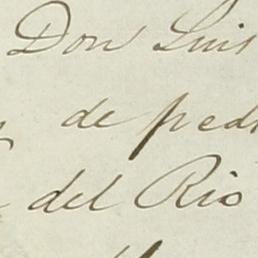 Don Luis
de pedr
del Rio